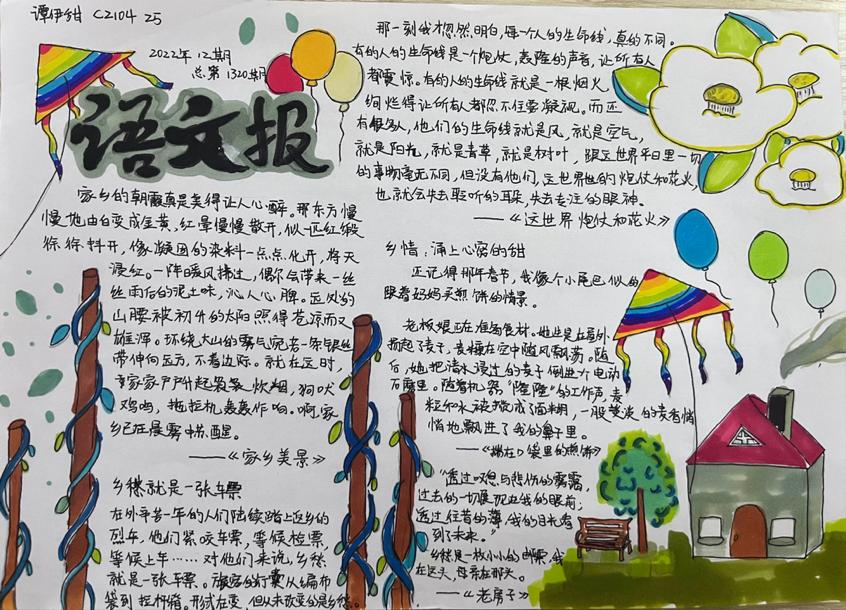 谭伊甜 C2104 25
2022年12期
总第1320期
语文报
家乡的朝霞真是美得让人心醉。那东方慢
慢地由白变成金黄,红晕慢慢散开,似一匹红缎
徐徐抖开,像凝固的染料一点点化开,将天
浸红。一阵暖风拂过,偶尔会带来一丝
丝雨后的泥土味,沁人心脾。远处的
山腰被初升的太阳照得苍凉而又
雄浑。环绕大山的雾气宛若一条银丝
带伸向远方,不着边际。就在这时,
家家户户升起袅袅炊烟,狗吠
鸡鸣,拖拉机轰轰作响。啊,家
乡已在晨雾中苏醒。
——《家乡美景》
乡愁就是一张车票
在外辛苦一年的人们陆续踏上返乡的
列车,他们紧攥车票,等候检票
等候上车……对他们来说,乡愁
就是一张车票。旅客的行囊从编布
袋到拉杆箱。形式在变,但从未改变的是乡愁。
那一刻我才忽然明白,每一个人的生命线,真的不同。
有的人的生命线是一个炮仗,轰隆的声音,让所有人
都震惊。有的人的生命线就是一根烟火
绚烂得让所有人都忍不住要凝视。而还
有很多人,他们的生命线就是风,就是空气,
就是阳光,就是青草,就是树叶,跟这世界平日里一切
的事物毫无不同,但没有他们,这世界上的炮仗和花火,
也就会失去聆听的耳朵,失去专注的眼神。
——《这世界炮仗和花火》
乡情:涌上心窝的甜
还记得那年春节,我像个小尾巴似的
跟着妈妈买煎饼的情景。
老板娘正在准备食材。她总是在屋外
扬起麦子,麦糠在空中随风飘荡。随
后,她把清水浸过的麦子倒进个电动
石磨里。随着机器"隆隆"的工作声,麦
粒和水被搅成了面糊,一股柔波的麦香悄
悄地飘进了我的鼻子里。
——《揣在口袋里的煎饼》
"透过叹息与悲伤的雾霭
过去的一切展现在我的眼前;
透过往昔的薄,我的目光看
到了未来。"
乡愁是一枚小小的邮票,我
在这头,母亲在那头。
——《老房子》